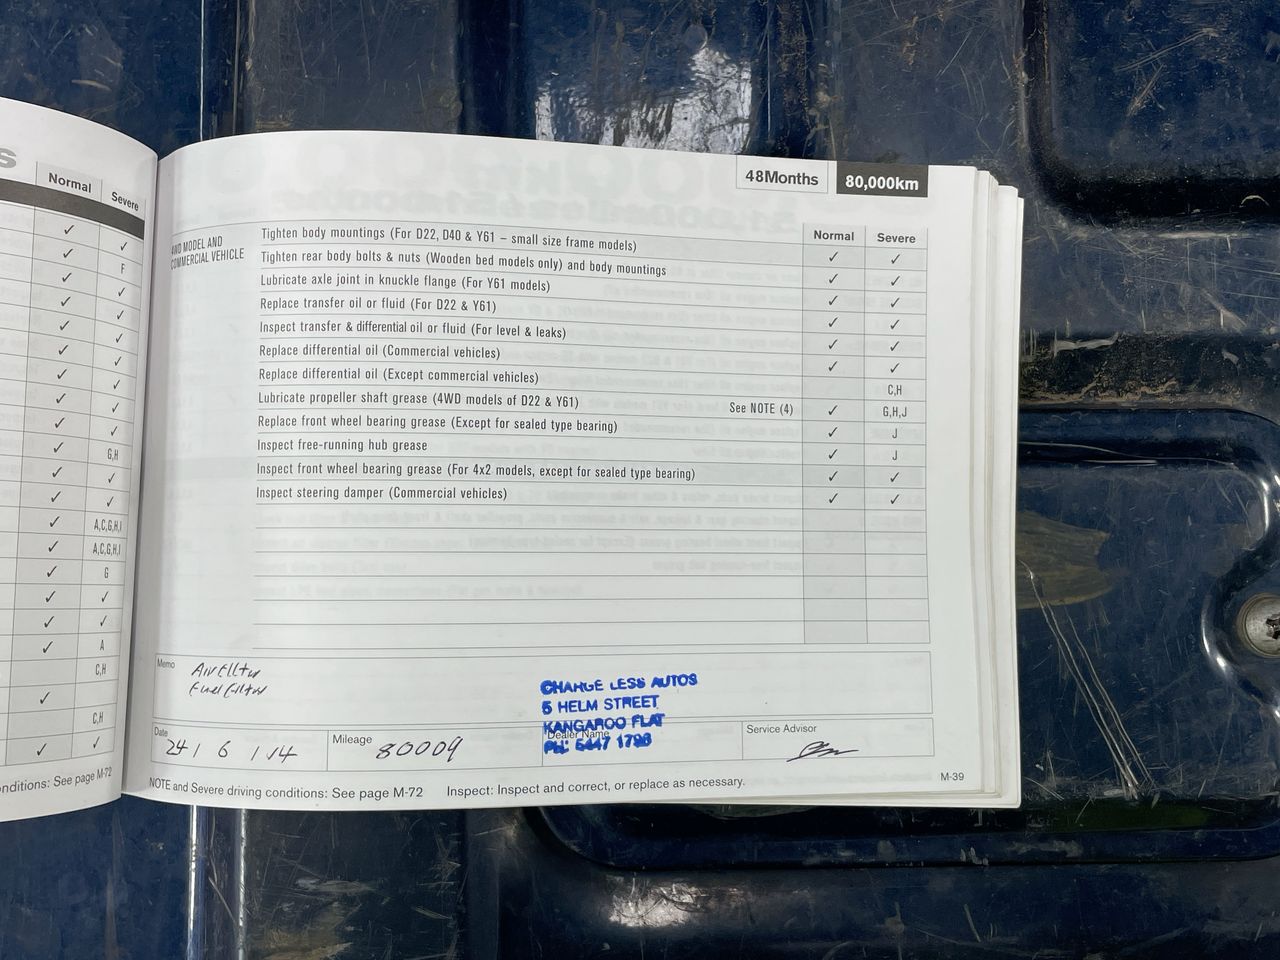 s
Normal
Severe
✓ ✓
✓ F
✓ ✓
✓ ✓
✓ ✓
✓ ✓
✓ ✓
✓ ✓
✓ G,H
✓ ✓
✓ ✓
✓ A,C,G,H,I
✓ A,C,G,H,I
✓ G
✓ ✓
✓ ✓
✓ A
C,H
✓
C,H
✓ ✓
onditions: See page M-72
48Months 80,000km
Normal Severe
4WD MODEL AND
COMMERCIAL VEHICLE
Tighten body mountings (For D22, D40 & Y61 – small size frame models) ✓ ✓
Tighten rear body bolts & nuts (Wooden bed models only) and body mountings ✓ ✓
Lubricate axle joint in knuckle flange (For Y61 models) ✓ ✓
Replace transfer oil or fluid (For D22 & Y61) ✓ ✓
Inspect transfer & differential oil or fluid (For level & leaks) ✓ ✓
Replace differential oil (Commercial vehicles) ✓ ✓
Replace differential oil (Except commercial vehicles) C,H
Lubricate propeller shaft grease (4WD models of D22 & Y61) See NOTE (4) ✓ G,H,J
Replace front wheel bearing grease (Except for sealed type bearing) ✓ J
Inspect free-running hub grease ✓ J
Inspect front wheel bearing grease (For 4x2 models, except for sealed type bearing) ✓ ✓
Inspect steering damper (Commercial vehicles) ✓ ✓
Memo
Air Filter
Fuel Filter
CHARGE LESS AUTOS
5 HELM STREET
KANGAROO FLAT
PH: 5447 1798
Date
24 / 6 / 14
Mileage 80009
Dealer Name
Service Advisor
NOTE and Severe driving conditions: See page M-72 Inspect: Inspect and correct, or replace as necessary.
M-39